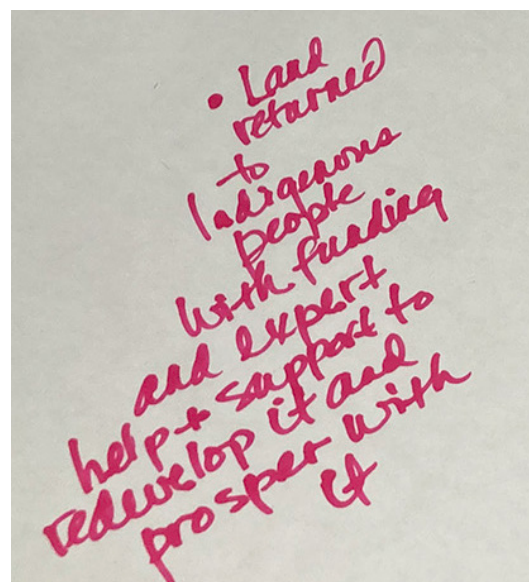 • Land
returned
to
Indigenous
people
with funding
and expert
help + support to
redevelop it and
prosper with
it